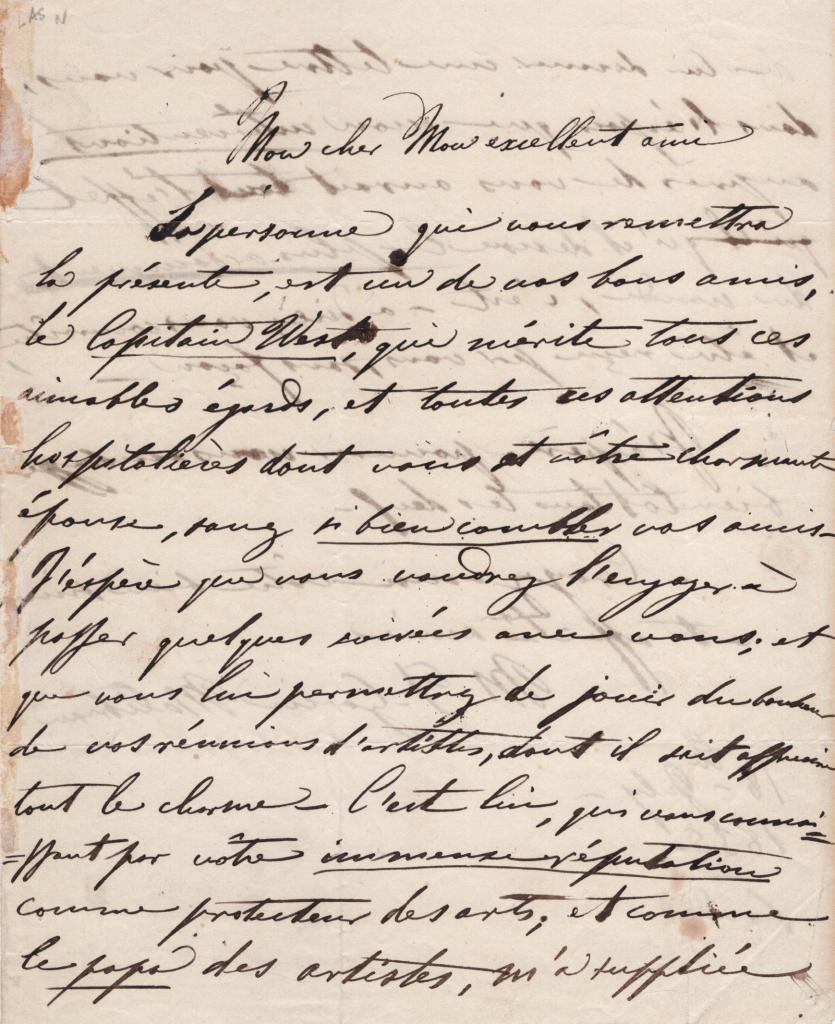 LAS N
Mon cher Mon excellent ami
La personne qui vous remettra
la présente, est un de nos bons amis,
le Capitain West, qui mérite tous ces
aimables égards, et toutes ces attentions
hospitalières dont vous et vôtre charmante
épouse, savez si bien combler vos amis-
J'espère que vous voudrez l'engager à
passer quelques soirées avec vous, et
que vous lui permettrez de jouir du bonheur
de vos réunions d'artistes, dont il sait apprécier
tout le charme - C'est lui, qui vous connoi=
=ssant par vôtre immense réputation
comme protecteur des arts, et comme
le papa des artistes, m'a suppliée